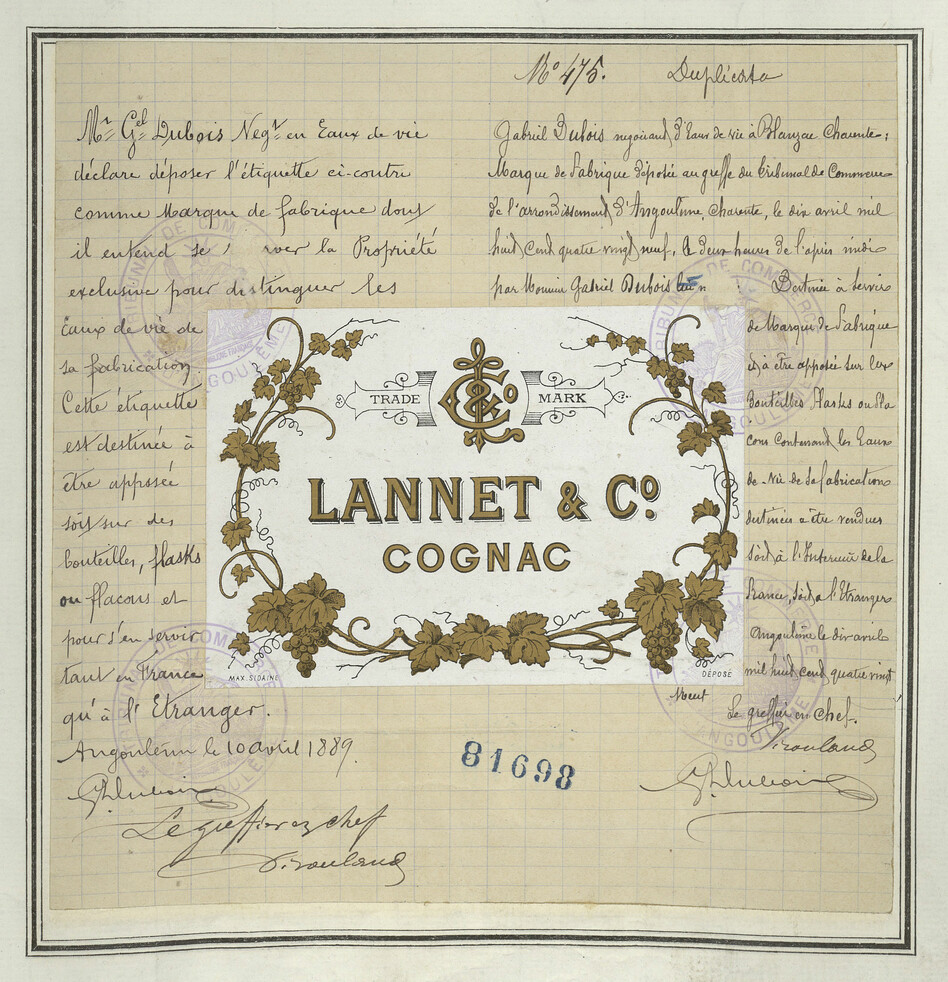 Nº 475. Duplicata
Mr Gel Dubois Negt en Eaux de vie
déclare déposer l'étiquette ci-contre
comme Marque de fabrique dont
il entend se rver la Propriété
exclusive pour distinguer les
Eaux de vie de
sa fabrication.
Cette étiquette
est destinée à
être apposée
soit sur des
bouteilles, flasks
ou flacons et
pour s'en servir
tant en France
qu'à l'Etranger.
Angoulême le 10 avril 1889.
GDubois
Le greffier en chef
Gabriel Dubois negociant d'Eaux de vie à Blanzac Charente;
Marque de Fabrique déposée au greffe du tribunal de Commerce
de l'arrondissement d'Angoulême, Charente, le dix avril mil
huit cent quatre vingt neuf, à deux heures de l'après midi
par Monsieur Gabriel Dubois Destinée à servir
de Marque de Fabrique
et à être apposée sur les
Bouteilles, flasks ou fla
cons contenant les Eaux
de-vie de sa fabrication
destinées a être vendues
soit à l'Interieur de la
France, soit a l'Etranger
Angoulême le dix avril
mil huit cent quatre vingt
Neuf
Le greffier en chef.
GDubois
TRADE & Cº MARK
LANNET & Cº.
COGNAC
MAX. SIDAINE
DÉPOSÉ
81698
TRIBUNAL DE COMMERCE
ANGOULÊME